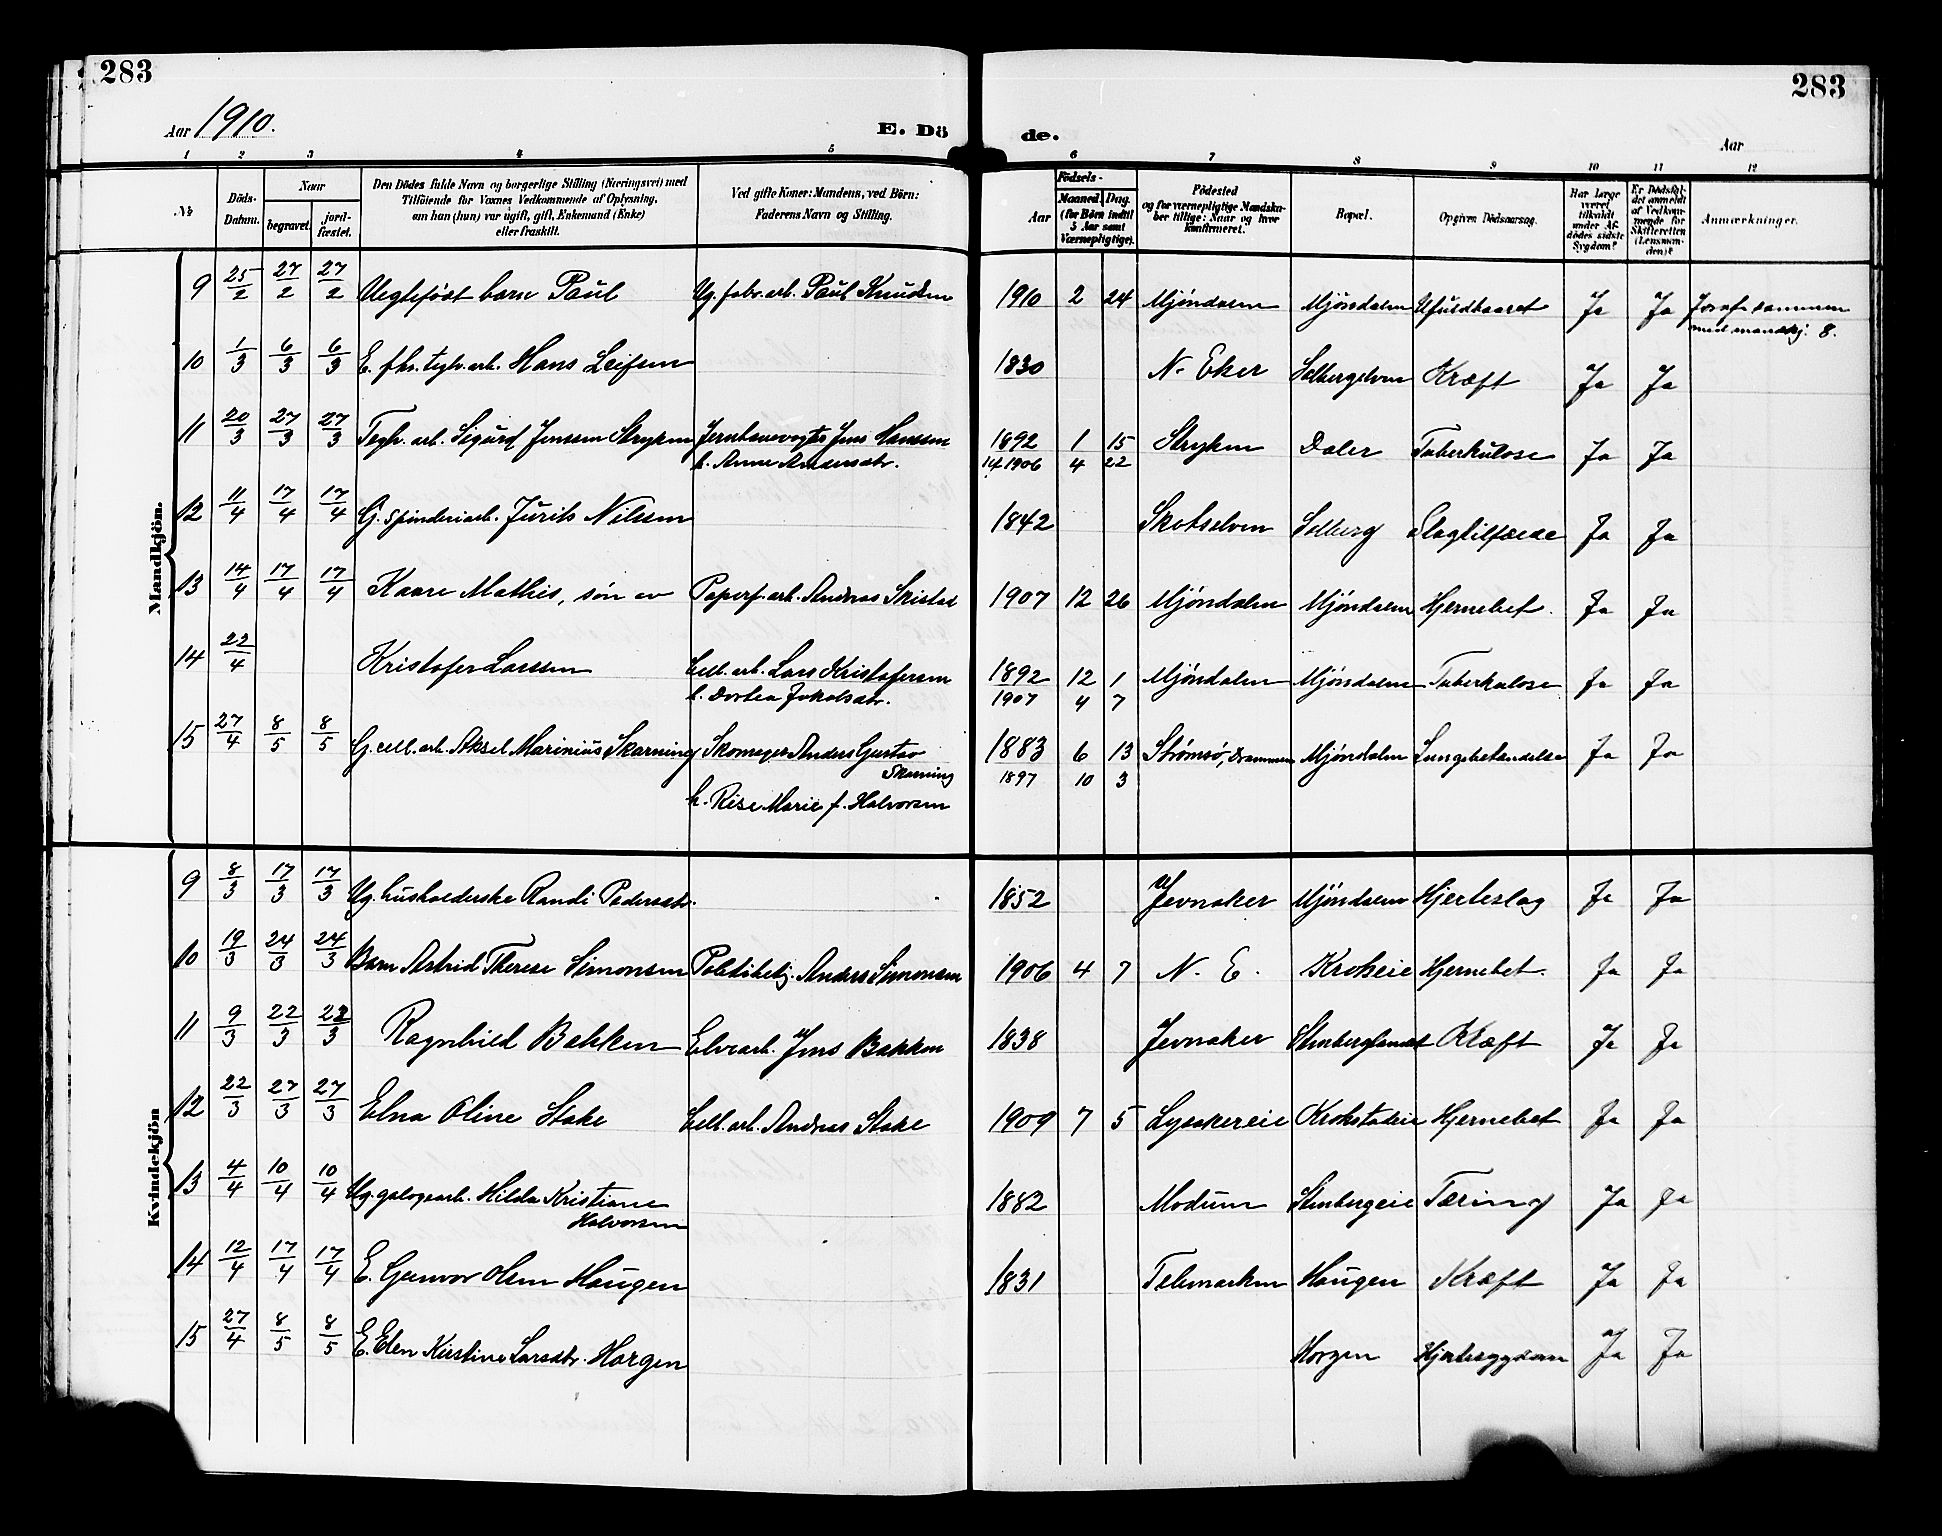 283
283
Aar 1910.
E. Dö
de.
Aar
1 2 3 4 5 6 7 8 9 10 11 12
No.
Döds-Datum.
Naar
begravet.
jord-fæstet.
Den Dödes fulde Navn og borgerlige Stilling (Næringsvei) med
Tilföiende for Voxnes Vedkommende af Oplysning,
om han (hun) var ugift, gift, Enkemand (Enke)
eller fraskilt.
Ved gifte Koner: Mandens, ved Börn:
Faderens Navn og Stilling.
Födsels-
Aar
Maaned. Dag.
(for Börn indtil
5 Aar samt
Værnepligtige).
Födested
og for værnepligtige Mandska-
ber tillige: Naar og hvor
konfirmeret.
Bopæl.
Opgiven Dödsaarsag.
Har Læge
været
tilkaldt
under Af-
dödes sidste
Sygdom?
Er Dödsfal-
det anmeldt
af Vedkom-
mende for
Skifteretten
(Lensman-
den)?
Anmærkninger.
Mandkjön.
9 25/2 27/2 27/2 Uegtefödt barn Paul Ug. fabr. arb. Paul Knudsen 1910 2 24 Mjöndalen Mjöndalen Ufuldbaaret Ja Ja Jordf. sammen
med mandkj. 8.
10 1/3 6/3 6/3 E. fhv. teglv. arb. Hans Leifsen 1830 N. Eker Solbergelven Kræft Ja Ja
11 20/3 27/3 27/3 Teglv. arb. Sigurd Jenssen Stryken Jernbanevogter Jens Hanssen 1892 1 15 Stryken Daler Tuberkulose Ja Ja
h. Anne Andersdtr. 14 1906 4 22
12 11/4 17/4 17/4 G. spinderiarb. Jurits Nilssen 1842 Skotselven Solberg Slagtilfælde Ja Ja
13 14/4 17/4 17/4 Kaare Mathis, sön av Papirf. arb. Andreas Skistad 1907 12 26 Mjöndalen Mjöndalen Hjernebet. Ja Ja
14 22/4 Kristofer Larssen Cell. arb. Lars Kristofersen 1892 12 1 Mjöndalen Mjöndalen Tuberkulose Ja Ja
h. Dortea Jakobsdtr. 1907 4 7
15 27/4 8/5 8/5 G. cell. arb. Aksel Marinius Skarning Skomager Anders Gustav 1883 6 13 Strömsö, Drammen Mjöndalen Lungebetændelse Ja Ja
Skarning 1897 10 3
h. Rise Marie f. Halvorsen
Kvindekjön
9 8/3 17/3 17/3 Ug. husholderske Randi Pedersdtr. 1852 Jevnaker Mjöndalen Hjerteslag Ja Ja
10 19/3 24/3 24/3 Barn Astrid Therese Simonsen Politibetj. Anders Simonsen 1906 4 7 N. E. Kroheie Hjernebet. Ja Ja
11 9/3 22/3 22/3 Ragnhild Bakken Elvearb. Jens Bakken 1838 Jevnaker Stenberglandet Kræft Ja Ja
12 22/3 27/3 27/3 Elna Oline Stake Cell. arb. Andreas Stake 1909 7 5 Lysakereie Krokstadeie Hjernebet Ja Ja
13 4/4 10/4 10/4 Ug. galogearb. Hilda Kristiane 1882 Modum Stenbergeie Tæring Ja Ja
Halvorsen
14 12/4 17/4 17/4 E. Gunvor Olsen Haugen 1831 Telemarken Haugen Kræft Ja Ja
15 27/4 8/5 8/5 E. Elen Kirstine Larsdtr. Horgen Horgen Hjertesygdom Ja Ja